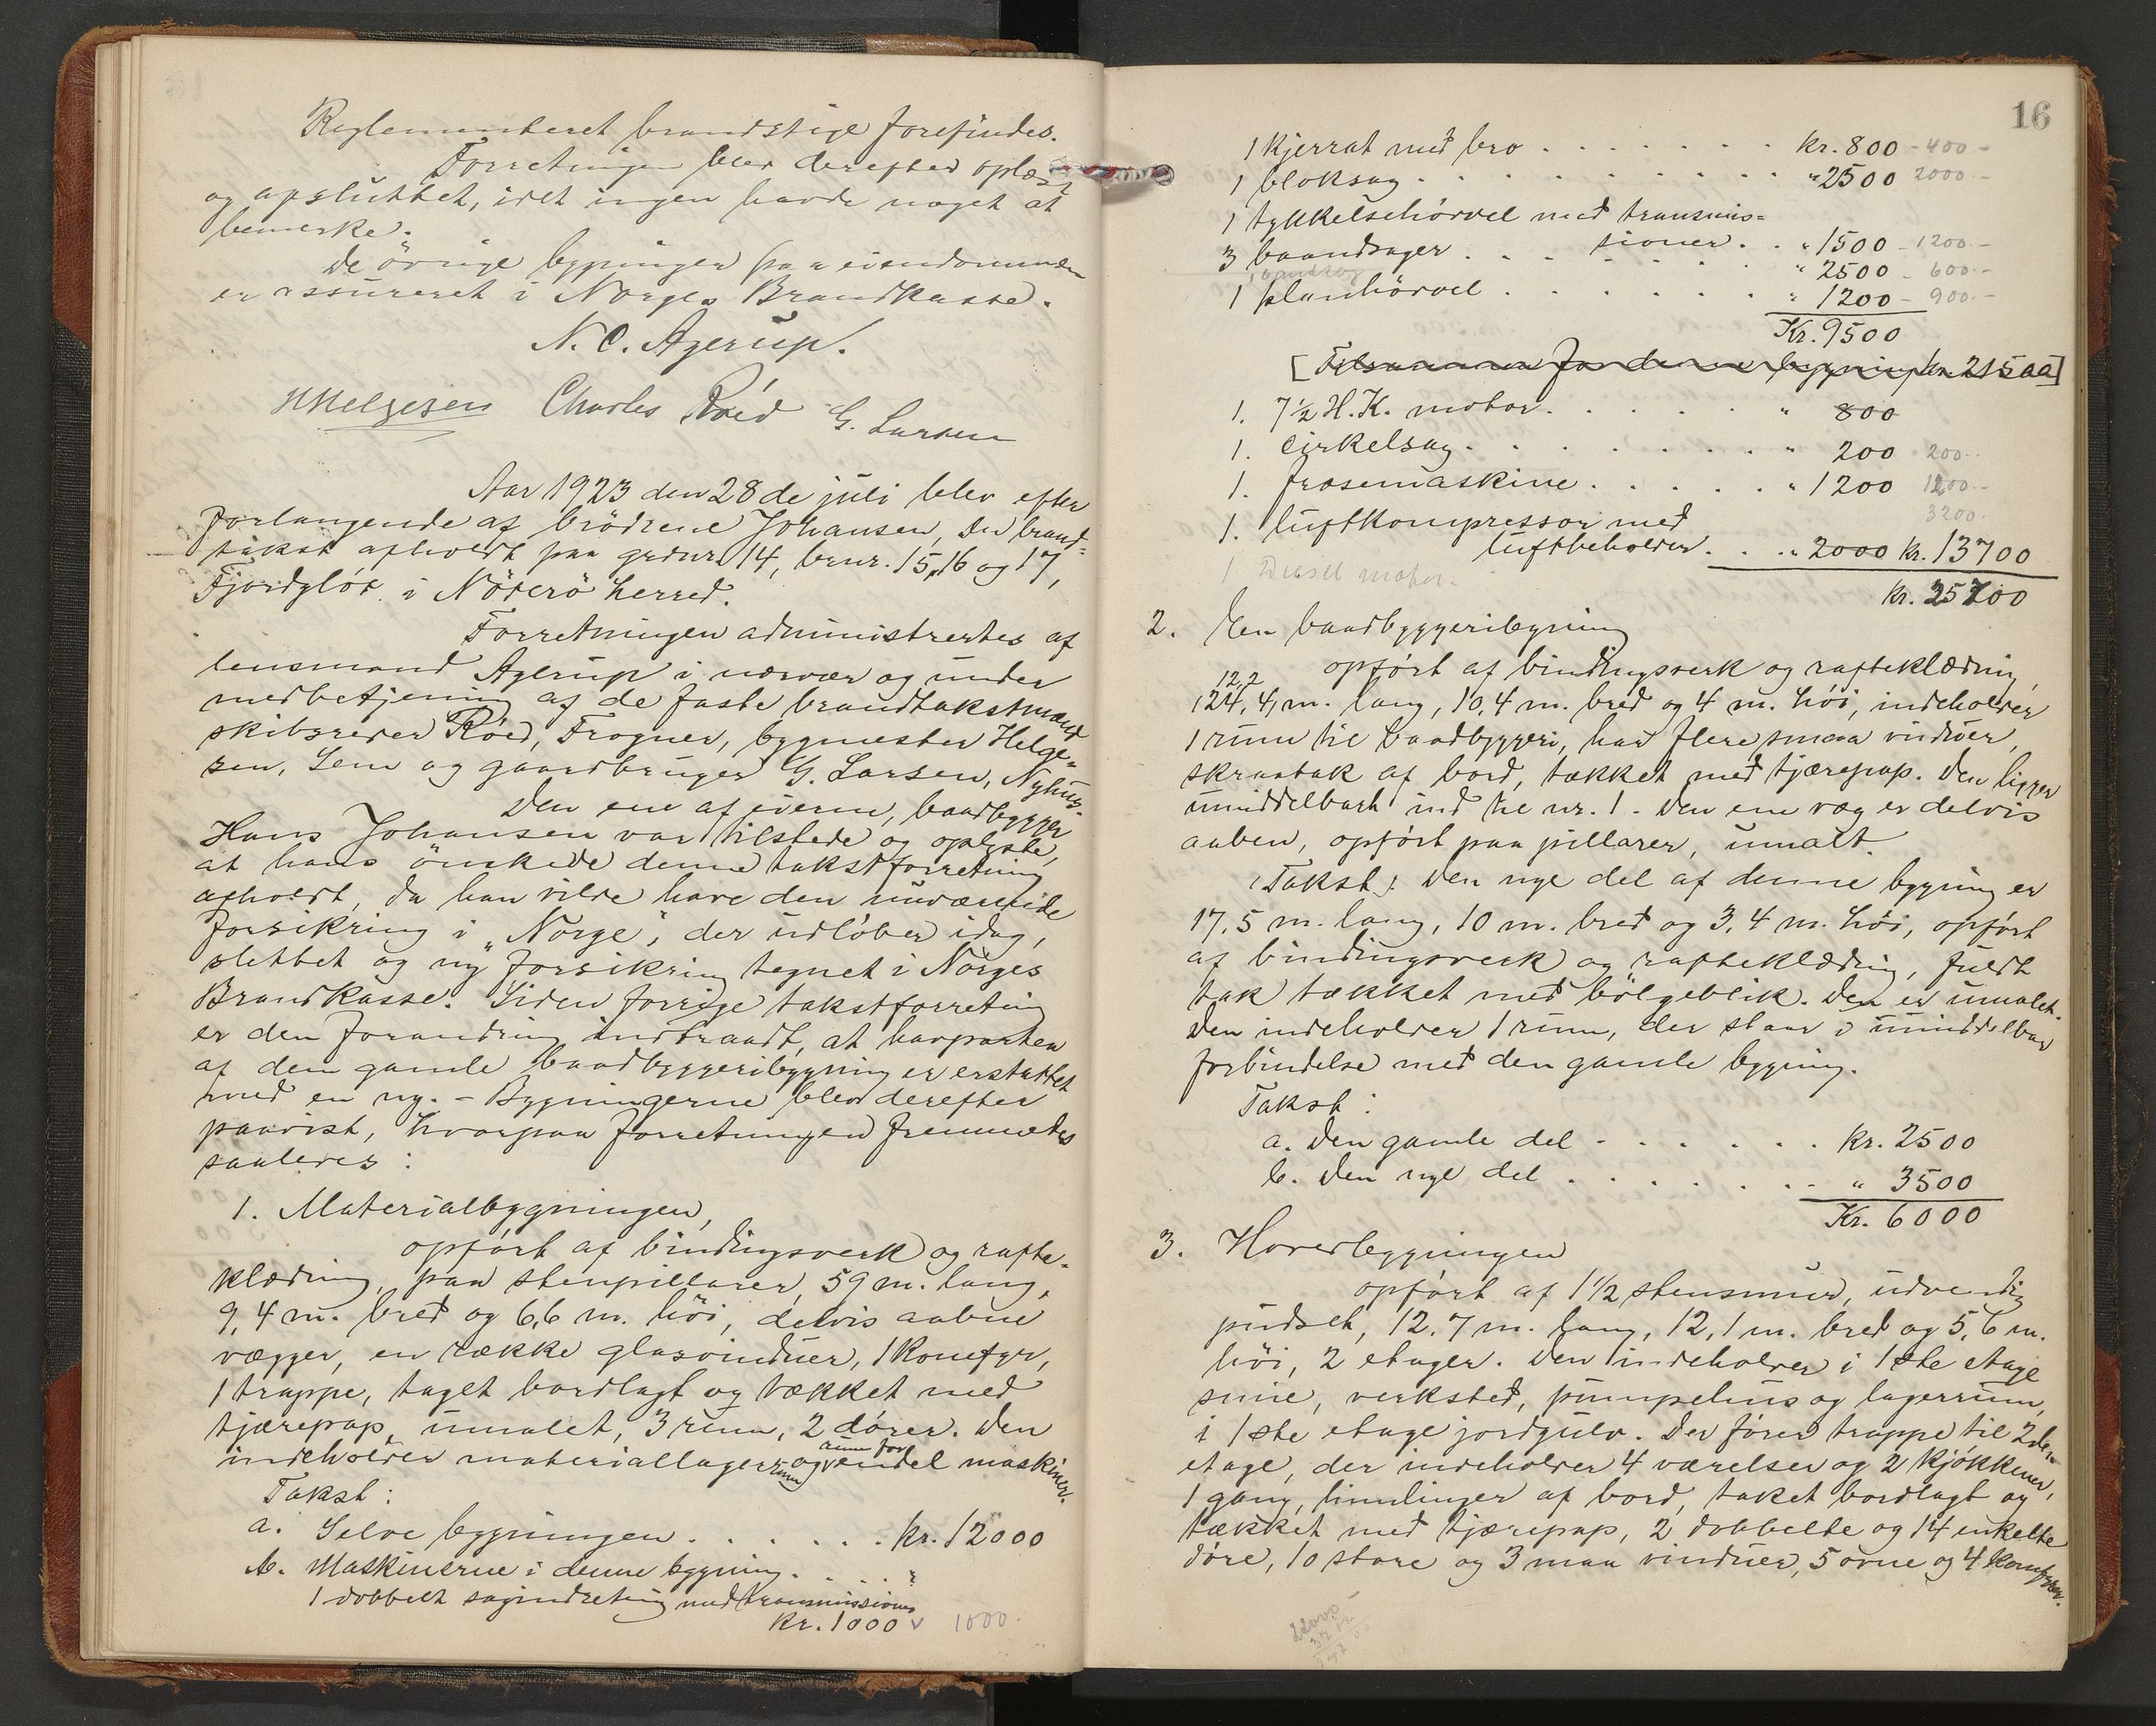 Reglementeret brandstige forefindes.
Forretningen blev derefter oplæst
og afsluttet, idet ingen havde noget at
bemerke.
De övrige bygninger paa eiendommen
er assureret i Norges Brandkasse.
N. C. Agerup.
HHelgesen Charles Röed G. Larsen
Aar 1923 den 28de juli blev efter
forlangende af brödrene Johansen, en brand=
takst afholdt paa grdnr. 14, brnr. 15, 16 og 17,
Fjordgløt i Nöterö herred.
Forretningen administrertes af
lensmand Agerup i nærvær og under
medbetjening af de faste brandtakstmænd
skibsreder Röed, Frogner, bygmester Helge=
sen, Sem og gaardbruger G. Larsen, Nyhus.
Den ene af eierne, baadbygger
Hans Johansen var tilstede og oplyste,
at han önskede denne takstforretning
afholdt, da han vilde have den nuværende
forsikring i „Norge", der udlöber idag,
slettet og ny forsikring tegnet i Norges
Brandkasse. Siden forrige takstforretning
er den forandring indtraadt, at havparten
af den gamle baadbyggeribygning er erstattet
med en ny. - Bygningerne blev derefter
paavist, hvorpaa forretningen fremmedes
saaledes:
1. Materialbygningen,
opført af bindingsverk og rafte=
klædning, paa stenpillarer, 59 m. lang,
9,4 m. bred og 6,6 m. höi, delvis aabne
vægger, en række glasvinduer, 1 komfyr,
1 trappe, taget bordlagt og tækket med
tjærepap, umalet, 3 rum, 2 dører. Den
rum for
indeholder materiallagerrum og endel maskiner.
Takst:
a. Selve bygningen . . . . . . kr. 12000
b. Maskinerne i denne bygning. . . . :
1 dobbelt sagindretning med transmissioner
kr. 1000 v 1000.
16
1 kjerrat med bro . . . . . . . kr. 800 - 400 -
1 bloksag . . . . . . . . . . " 2500 2000 -
1 tykkelsehövvel med transmis=
sioner . . " 1500 - 1200 -
3 baandsager . . . . . . . " 2500 - 600 -
1 planhövvel . . . . . . . " 1200 - 900 -
Kr. 9500
[Tilsammen for denne bygning kr. 21500]
1. 7½ H.K. motor. . . . . . " 800
1. Cirkelsag . . . . . . . . " 200 200 -
1. fræsemaskine . . . . . . " 1200 1200 -
3200 -
1. luftkompressor med
luftbeholder . . . " 2000 kr. 13700
1 Diesel motor.
kr. 25700
2. Een baadbyggeribygning
opført af bindingsverk og rafteklædning,
12,2
24,4 m. lang, 10,4 m. bred og 4 m. höi, indeholder
1 rum til baadbyggeri, har flere smaa vinduer,
skraatak af bord, tækket med tjærepap. Den ligger
umiddelbart ind til nr. 1. Den ene væg er delvis
aaben, opført paa pillarer, umalt.
(Takst): Den nye del af denne bygning er
17,5 m. lang, 10 m. bred og 3,4 m. höi, opført
af bindingsverk og rafteklædning, fuldt
tak tækket med bölgeblik. Den er umalet.
Den indeholder 1 rum, der staar i umiddelbar
forbindelse med den gamle bygning.
Takst:
a. Den gamle del . . . . . . kr. 2500
b. Den nye del . . . . . . . " 3500
Kr. 6000
3. Hovedbygningen
opført af 1½ stensmur, udvendig
pudset, 12,7 m. lang, 12,1 m. bred og 5,6 m.
höi, 2 etager. Den indeholder i 1ste etage
smie, verksted, pumpehus og lagerrum,
i 1ste etage jordgulv. Der fører trappe til 2den
etage, der indeholder 4 værelser og 2 kjökkener,
1 gang, himlinger af bord, taket bordlagt og
tækket med tjærepap, 2 dobbelte og 14 enkelte
döre, 10 store og 3 smaa vinduer, 5 ovne og 4 komfyrer.